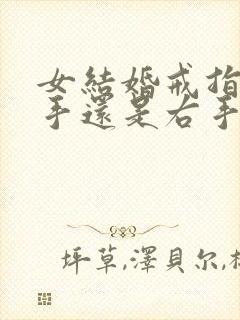 女結婚戒指
手還是右手
坪草,澤貝尔,